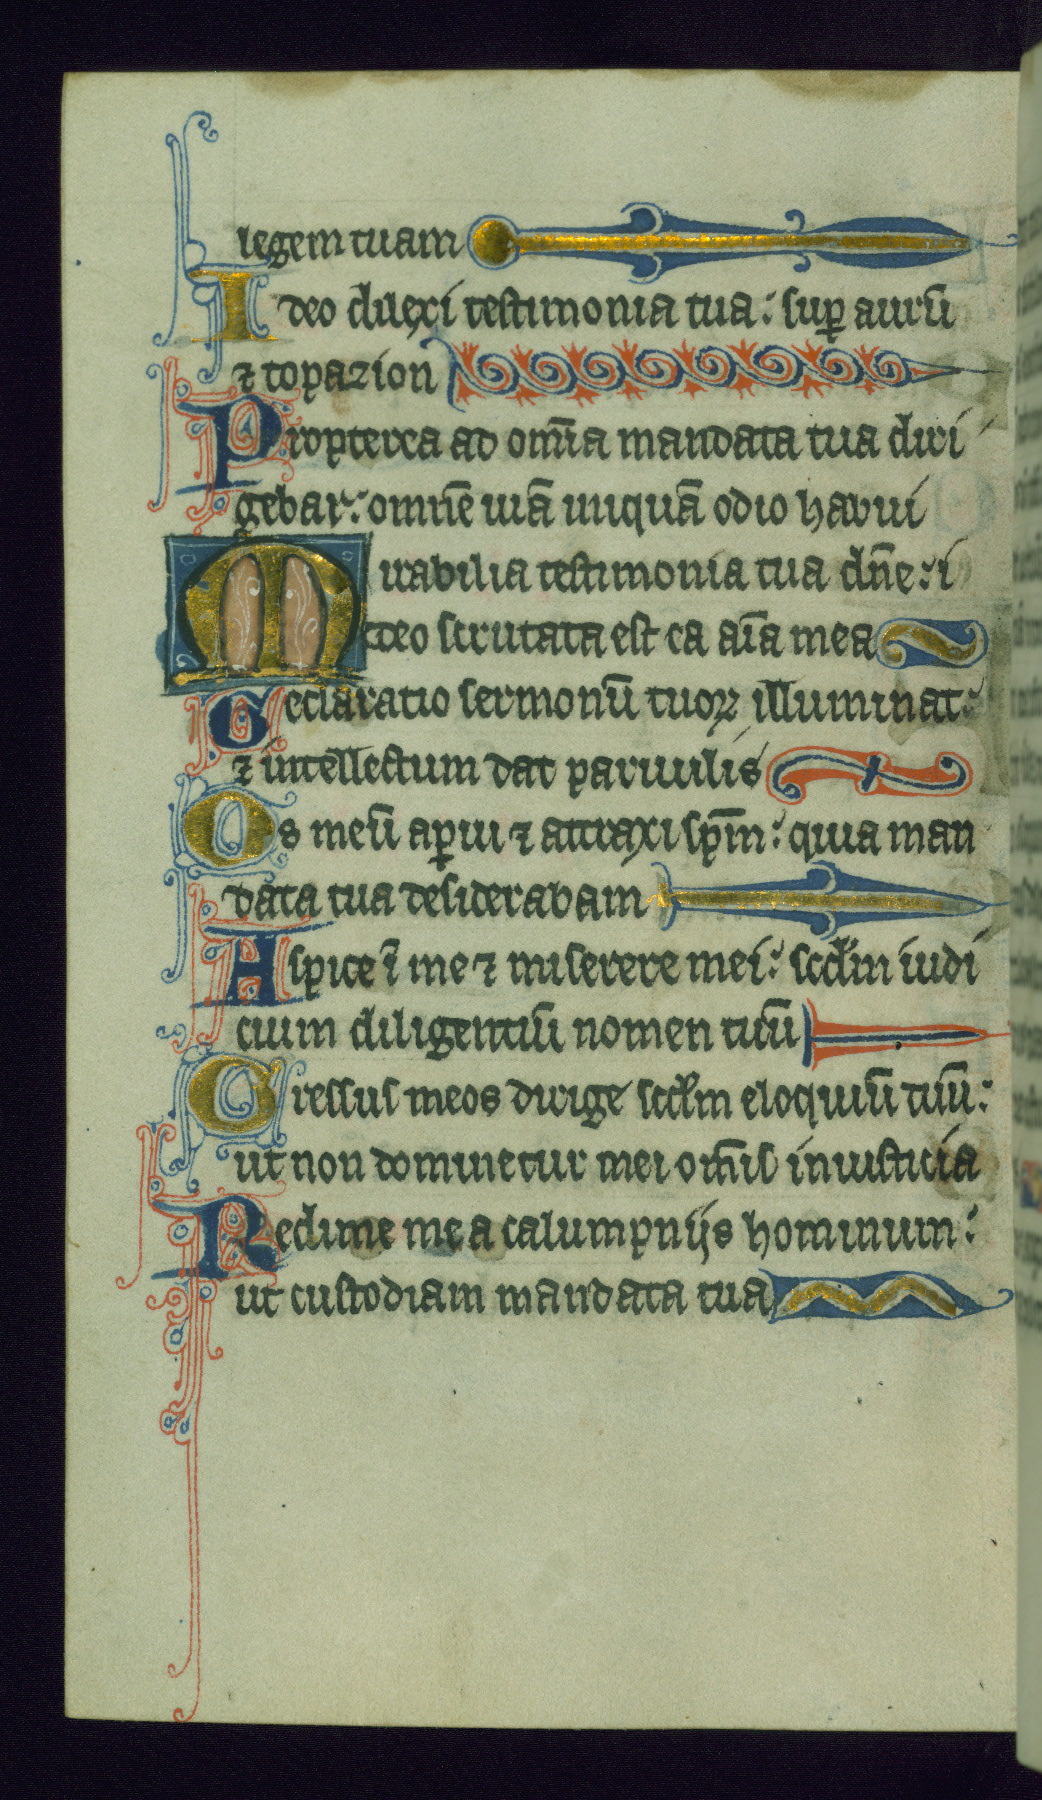 legem tuam
Ideo dilexi testimonia tua: sup̄ aurū
⁊ topazion
Propterea ad om̄ia mandata tua diri
gebar: omnē uiā iniquā odio habui
Mirabilia testimonia tua dn̄e: i
deo scrutata est ea aīa mea
Declaratio sermonū tuoꝝ illuminat:
⁊ intellectum dat paruulis
Os meū aꝑui ⁊ attraxi sp̄m: quia man
data tua desiderabam
Aspice ī me ⁊ miserere mei: scd̄m iudi
cium diligentiū nomen tuū
Gressus meos dirige scd̄m eloquiū tuū:
ut non dominetur mei om̄is iniusticia
Redime me a calumpniis hominum:
ut custodiam mandata tua